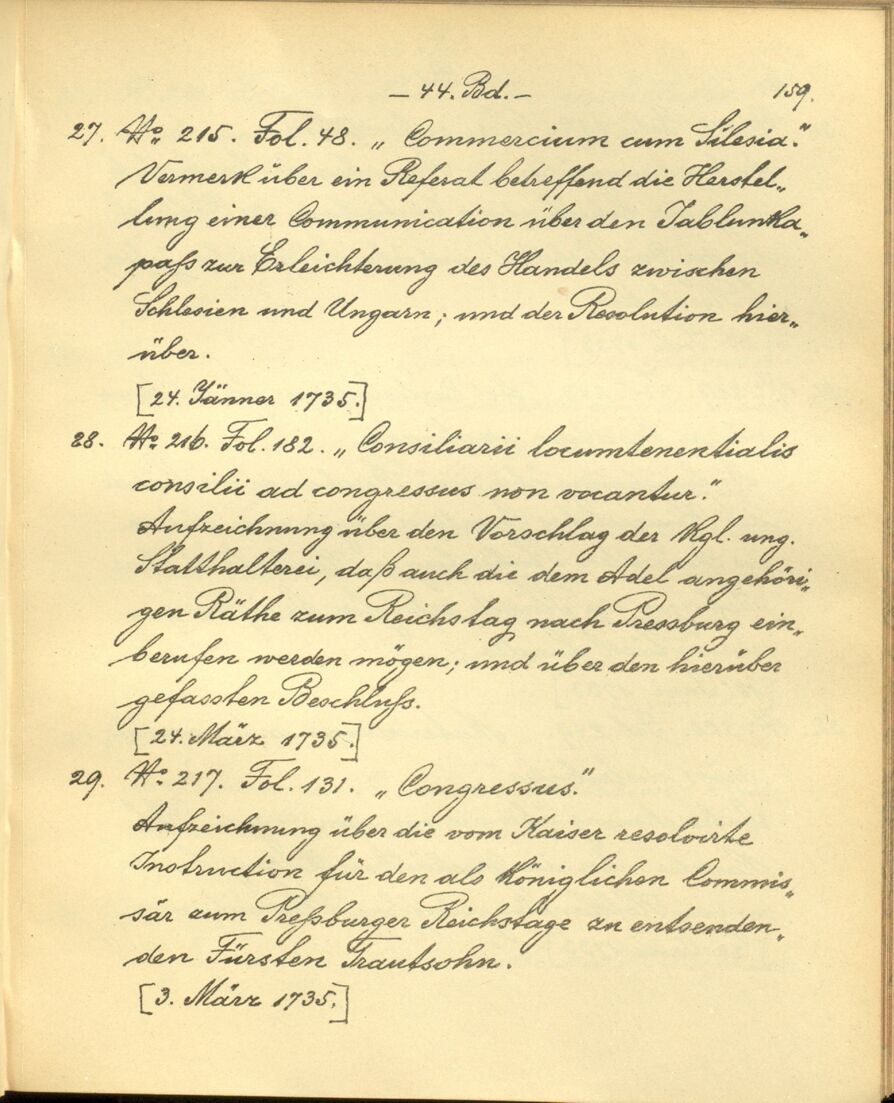 – 44. Bd. – 159.
27. No 215. Fol. 48. „Commercium cum Silesia."
Vermerk über ein Referat betreffend die Herstel„
lung einer Communication über den Jablunka„
paß zur Erleichterung des Handels zwischen
Schlesien und Ungarn; und der Resolution hier„
über.
[24. Jänner 1735.]
28. No 216. Fol. 182. „Consiliarii locumtenentialis
consilii ad congressus non vocantur."
Aufzeichnung über den Vorschlag der Kgl. ung.
Statthalterei, daß auch die dem Adel angehöri„
gen Räthe zum Reichstag nach Pressburg ein„
berufen werden mögen; und über den hierüber
gefassten Beschluß.
[24. März 1735.]
29. No 217. Fol. 131. „Congressus."
Aufzeichnung über die vom Kaiser resolvirte
Instruction für den als Königlichen Commis„
sär zum Preßburger Reichstage zu entsenden„
den Fürsten Trautsohn.
[3. März 1735.]